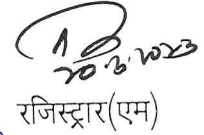 20.3.2023
रजिस्ट्रार(एम)